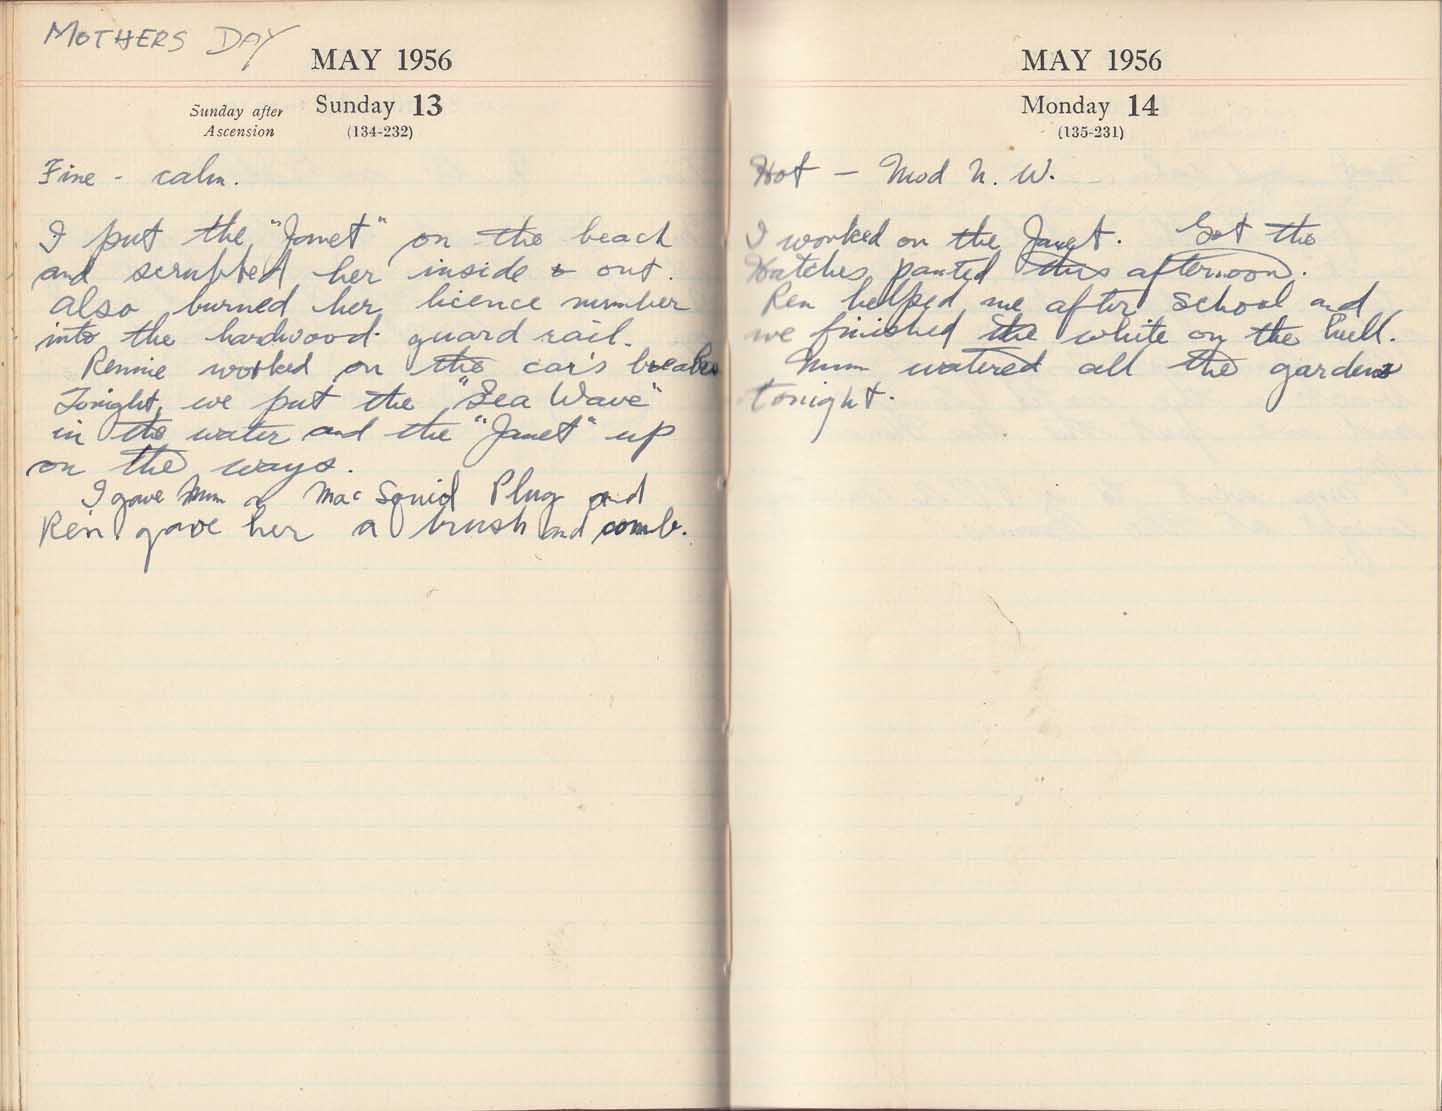 MOTHERS DAY
MAY 1956
Sunday after
Ascension
Sunday 13
(134-232)
Fine - calm.
I put the "Janet" on the beach
and scrubbed her inside & out.
Also burned her licence number
into the hardwood guard rail.
Rennie worked on the car's breakes
Tonight, we put the "Sea Wave"
in the water and the "Janet" up
on the ways.
I gave Mum a Mac Squid Plug and
Ren gave her a brush and comb.
MAY 1956
Monday 14
(135-231)
Hot - Mod N. W.
I worked on the Janet. Got the
Hatches panted this afternoon.
Ren helped me after school and
we finished the white on the hull.
Mum watered all the gardens
tonight.